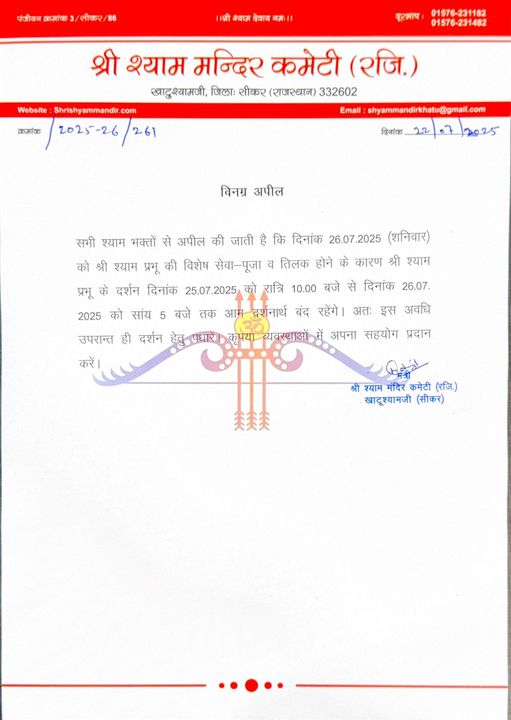 पंजीयन क्रमांक 3/सीकर/86
।।श्री श्याम देवाय नमः।।
दूरभाष : 01576-231182
01576-231482
श्री श्याम मन्दिर कमेटी (रजि.)
खाटूश्यामजी, जिला: सीकर (राजस्थान) 332602
Website : Shrishyammandir.com
Email : shyammandirkhatu@gmail.com
क्रमांक /2025-26/261
दिनांक 22/07/2025
विनम्र अपील
सभी श्याम भक्तों से अपील की जाती है कि दिनांक 26.07.2025 (शनिवार)
को श्री श्याम प्रभू की विशेष सेवा–पूजा व तिलक होने के कारण श्री श्याम
प्रभू के दर्शन दिनांक 25.07.2025 को रात्रि 10.00 बजे से दिनांक 26.07.
2025 को सांय 5 बजे तक आम दर्शनार्थ बंद रहेंगे। अतः इस अवधि
उपरान्त ही दर्शन हेतु पधारें। कृपया व्यवस्थाओं में अपना सहयोग प्रदान
करें।
ॐ
मंत्री
श्री श्याम मंदिर कमेटी (रजि.)
खाटूश्यामजी (सीकर)